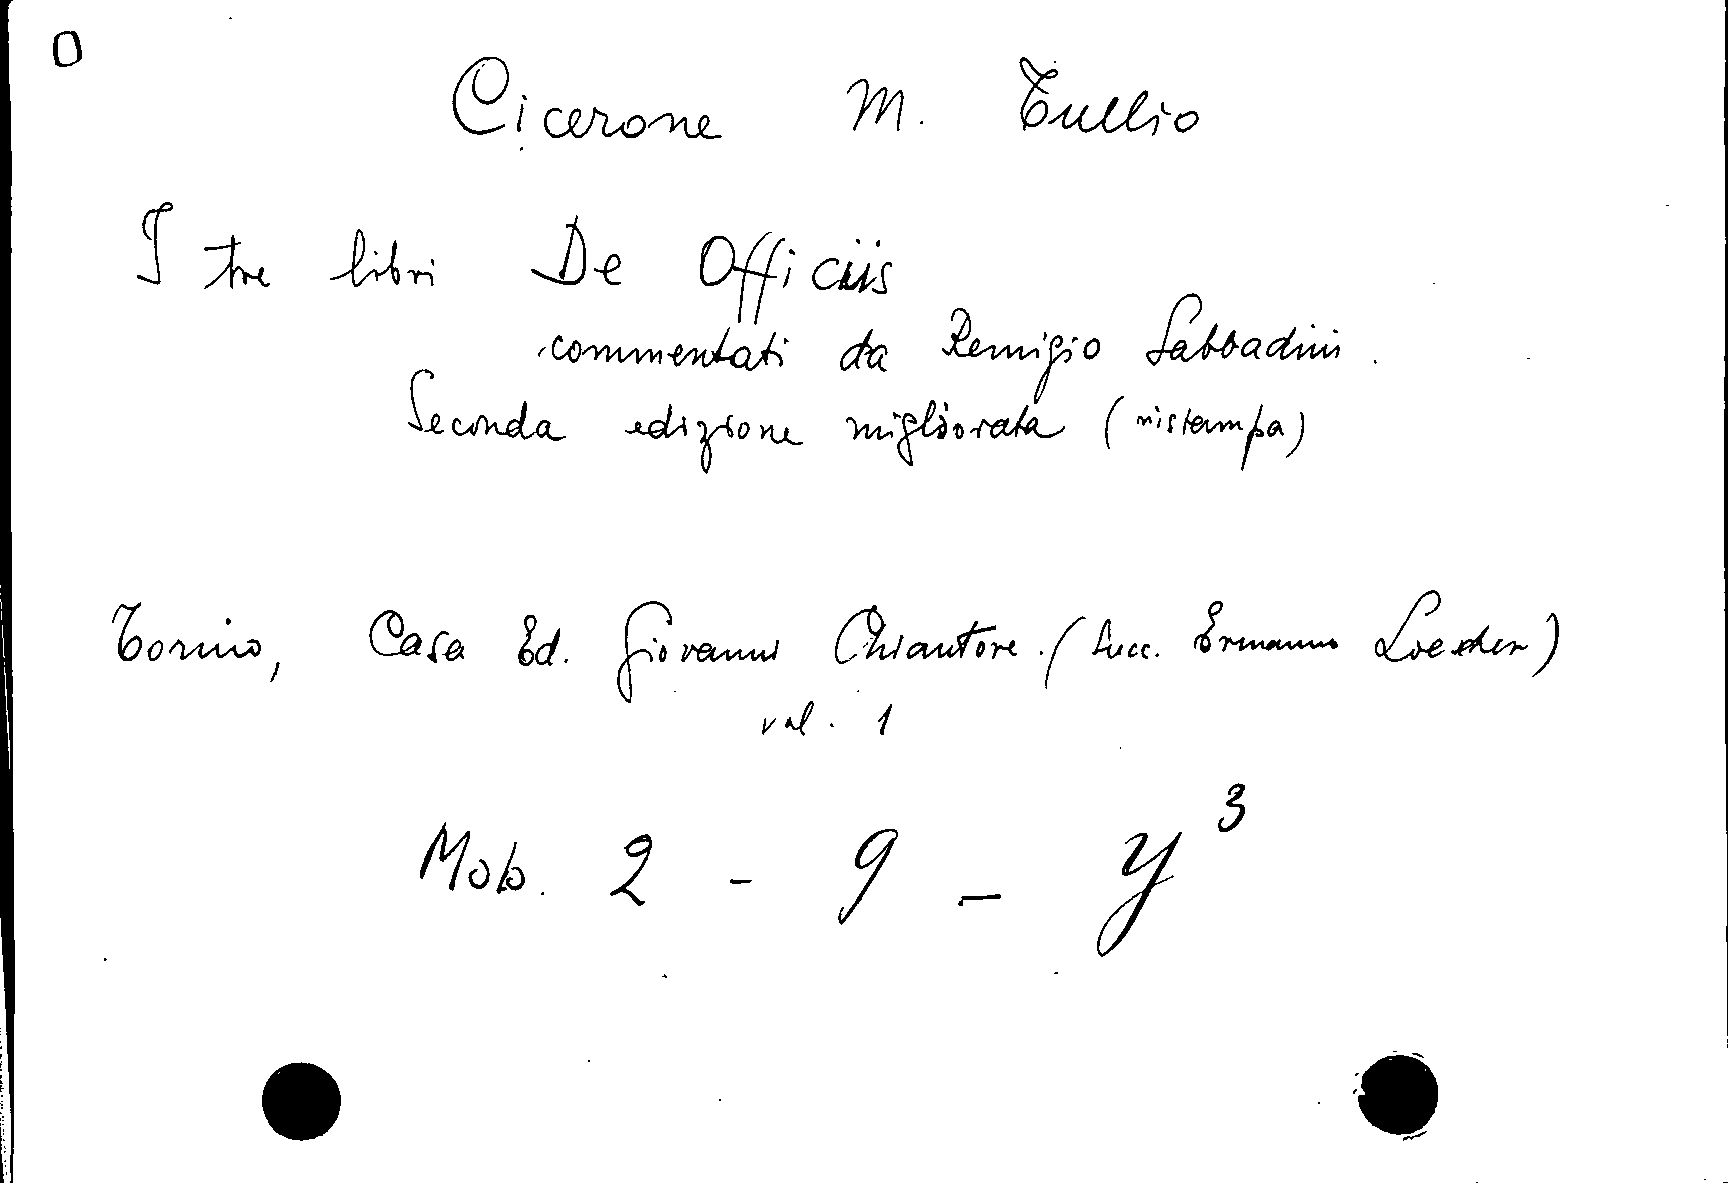 0
Cicerone M. Tullio
I tre libri De Officiis
commentati da Remigio Sabbadini.
Seconda edizione migliorata (ristampa)
Torino, Casa Ed. Giovanni Chiantore. (Succ. Ermanno Loescher)
vol. 1
Mob. 2 - 9 - y³